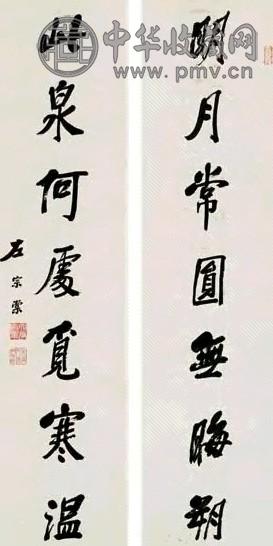 中华收藏网
www.pmv.cn
明月常圓無晦朔
此泉何處覓寒温
左宗棠